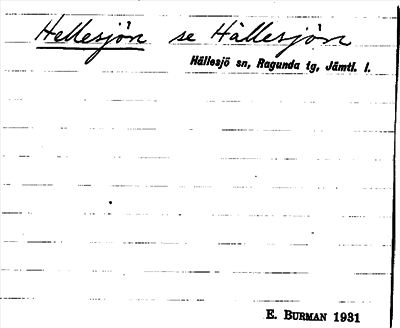 Hellesjön se Hällesjön
Hällesjö sn, Ragunda tg, Jämtl. l.
E. BURMAN 1931